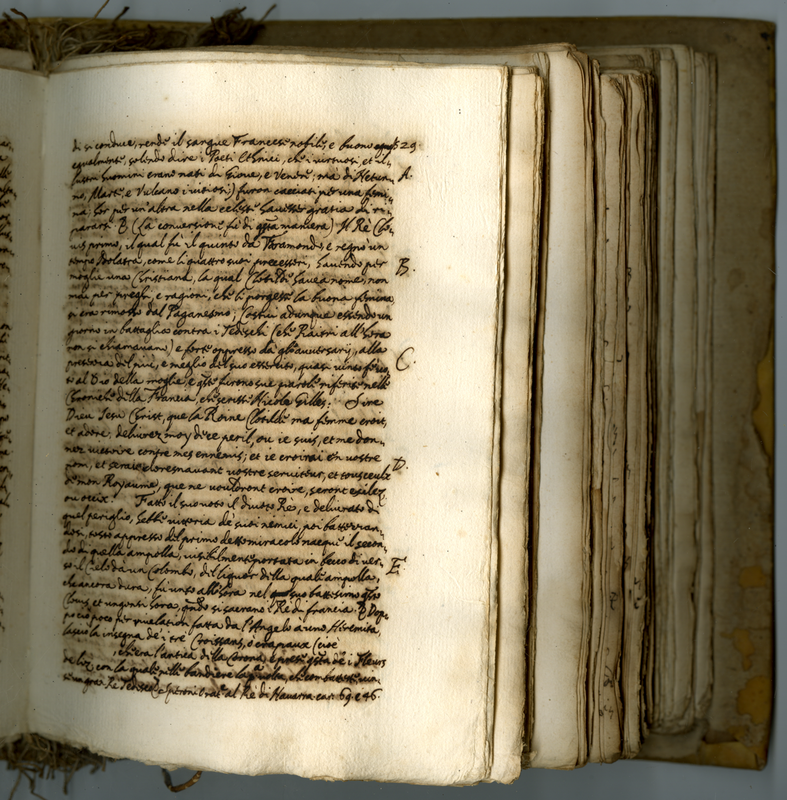 di si conduce, rende il sangue Francese nobile, e buono 29
egualmente, solendo dire i Poeti Ethnici, che i virtuosi, et il-
lustri huomini erano nati di Giove, e Venere; ma di Nettun- A.
no, Marte, e Vulcano i vitiosi) furon cacciati per una femi-
na; hor per un'altra nella celeste havesser gratia di ri-
pararsi. B (La conversione fu di questa maniera) Il Rè Clo-
vis primo, il qual fu il quinto da Faramondo e regnò un
tempo Idolatra, come li quattro suoi precessori, havendo per B.
moglie una Christiana, la qual Clotilde havea nome, non
mai per preghi, e ragioni, che li porgesse la buona femina
si era rimosso dal Paganesmo; Costui adunque essendo un
giorno in battaglia contra i Tedeschi (che Raitri all'hora
non si chiamavano) e forte oppresso da gli avversarij, alla
presenza del più, e meglio del suo essercito, quasi vinto fe vo- C.
to al Dio della moglie, e queste furono sue parole riferite nelle
Chroniche della Francia, che scrisse Nicole Gilles. Sire
Dieu Jesu Christ, que la Roine Clotilde ma femme croit,
et adore, delivrez moy de ce peril, ou ie suis, et me don-
nez victoire contre mes ennemis; et ie croirai en vostre
nom, et seraie doresnavant vostre serviteur, et tous ceulx D.
de mon Royaume, que ne vouldront croire, seront exilez,
ou occix. Fatto il suo voto il divoto Rè, e deliverato di
quel periglio, hebbe vittoria de' suoi nemici, poi battezzan-
dosi, tosto appresso del primo detto miracolo nacque il secon-
do di quella ampolla, visibilmente portata in becco di ver- E
so il Cielo da un Colombo, del liquor della quale ampolla,
che ancora dura, fu unto all'hora nel suo battesimo esso
Clovis, et ungonsi hora, quando si sacrano i Rè di Francia. Dop-
po poco per rivelation fatta da l'Angelo a uno Heremita,
lasciò la insegna de' i tre Croissans, ò crapaux (cioè
che era l'antica della Corona, e prese questa de' i Fleurs
de liz, con la quale nelle bandiere la prima volta, che combattette vin-
se un gran Re Tedesco, e Speroni Orat. al Rè di Navarra car. 69. e 46.